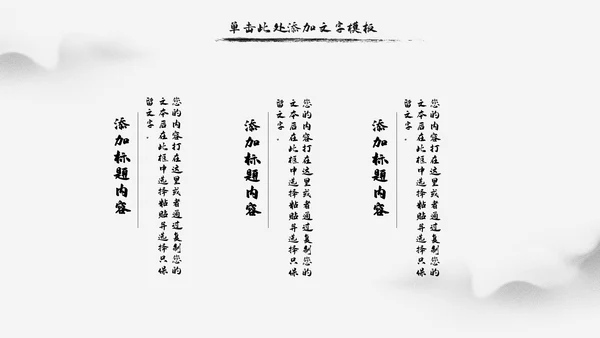 单击此处添加文字模板
添加标题内容
您的内容打在这里或者通过复制您的
文本后在此框中选择粘贴并选择只保
留文字.
添加标题内容
您的内容打在这里或者通过复制您的
文本后在此框中选择粘贴并选择只保
留文字.
添加标题内容
您的内容打在这里或者通过复制您的
文本后在此框中选择粘贴并选择只保
留文字.